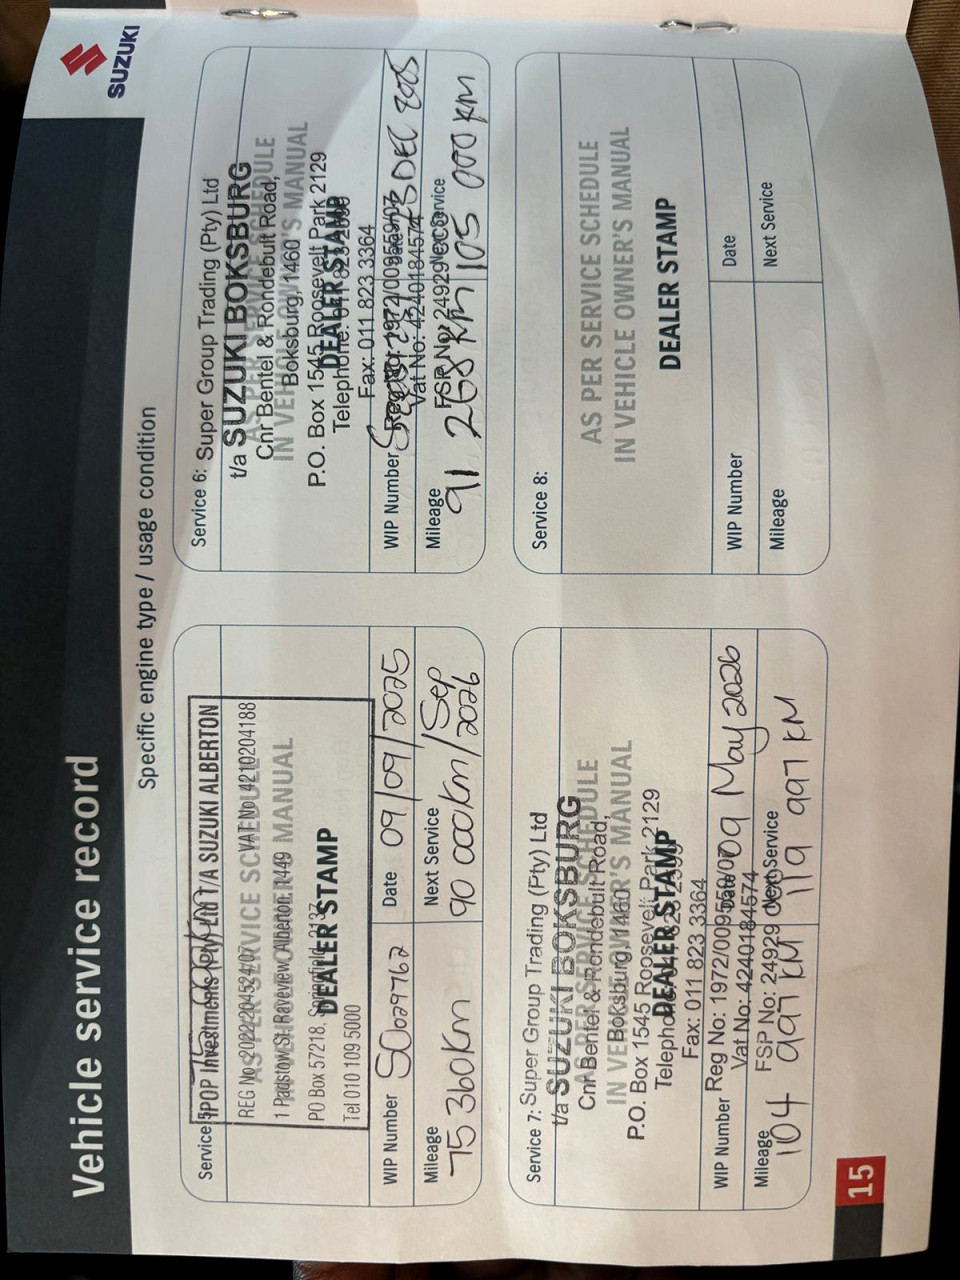 Vehicle service record
SUZUKI
Specific engine type / usage condition
Service 5:
75 000km
IPOP Investments (Pty) Ltd T/A SUZUKI ALBERTON
REG No: 2022/204524/07 VAT No: 4210204188
AS PER SERVICE SCHEDULE
1 Padstow St, Raceview, Alberton, 1449
IN VEHICLE OWNER'S MANUAL
PO Box 57218, Springfield, 2137
DEALER STAMP
Tel 010 109 5000
WIP Number SO029762
Date 09/09/2025
Mileage
75 360km
Next Service
90 000km/Sep
2026
Service 6:
Super Group Trading (Pty) Ltd
t/a SUZUKI BOKSBURG
AS PER SERVICE SCHEDULE
Cnr Bentel & Rondebult Road,
IN VEHICLE OWNER'S MANUAL
Boksburg, 1460
P.O. Box 1545 Roosevelt Park 2129
DEALER STAMP
Telephone: 011
Fax: 011 823 3364
WIP Number
Reg No: 1972/009559/07
Date
DEC 2025
Vat No: 4240184574
Mileage
FSP No: 24929
Next Service
91 268 km
105 000 km
Service 7:
Super Group Trading (Pty) Ltd
t/a SUZUKI BOKSBURG
AS PER SERVICE SCHEDULE
Cnr Bentel & Rondebult Road,
IN VEHICLE OWNER'S MANUAL
Boksburg, 1460
P.O. Box 1545 Roosevelt Park 2129
DEALER STAMP
Telephone:
Fax: 011 823 3364
WIP Number
Reg No: 1972/009559/07
Date
09 May 2026
Vat No: 4240184574
Mileage
FSP No: 24929
Next Service
104 997 KM
119 997 KM
Service 8:
AS PER SERVICE SCHEDULE
IN VEHICLE OWNER'S MANUAL
DEALER STAMP
WIP Number
Date
Mileage
Next Service
15